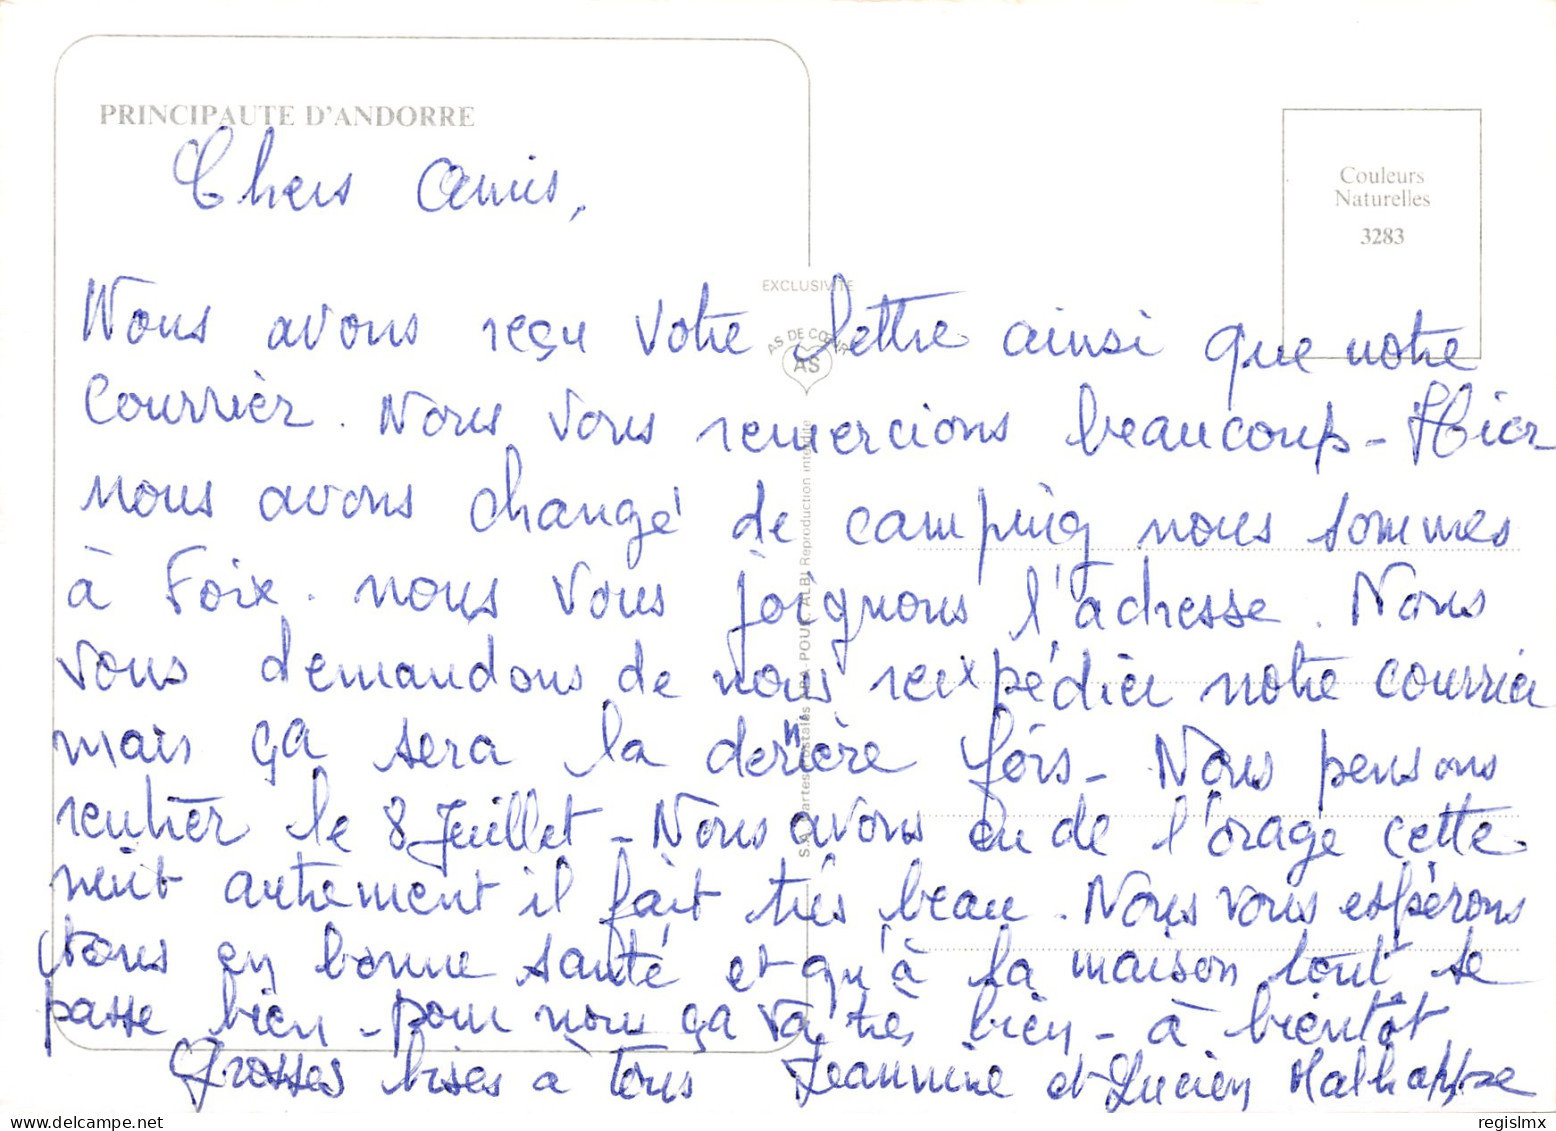 PRINCIPAUTE D'ANDORRE
Couleurs
Naturelles
3283
EXCLUSIVITE
AS DE CŒUR
AS
Chers amis,
Nous avons reçu votre lettre ainsi que notre
courrier. Nous vous remercions beaucoup - Hier
nous avons changé de camping nous sommes
à Foix. nous vous joignons l'adresse. Nous
vous demandons de nous reexpédier notre courrier
mais ça sera la dernière fois - Nous pensons
rentrer le 8 Juillet - Nous avons eu de l'orage cette
nuit autrement il fait très beau. Nous vous espérons
tous en bonne santé et qu'à la maison tout se
passe bien - pour nous ça va très bien - à bientôt
Grosses bises à tous Jeannine et Lucien
POUX. ALBI Reproduction interdite
regislmx